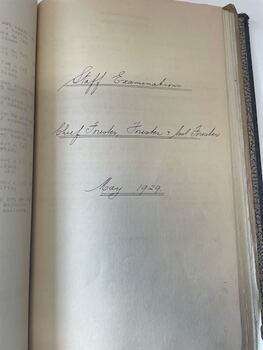 Staff Examinations
Chief Forester, Forester & Asst Forester
May 1929